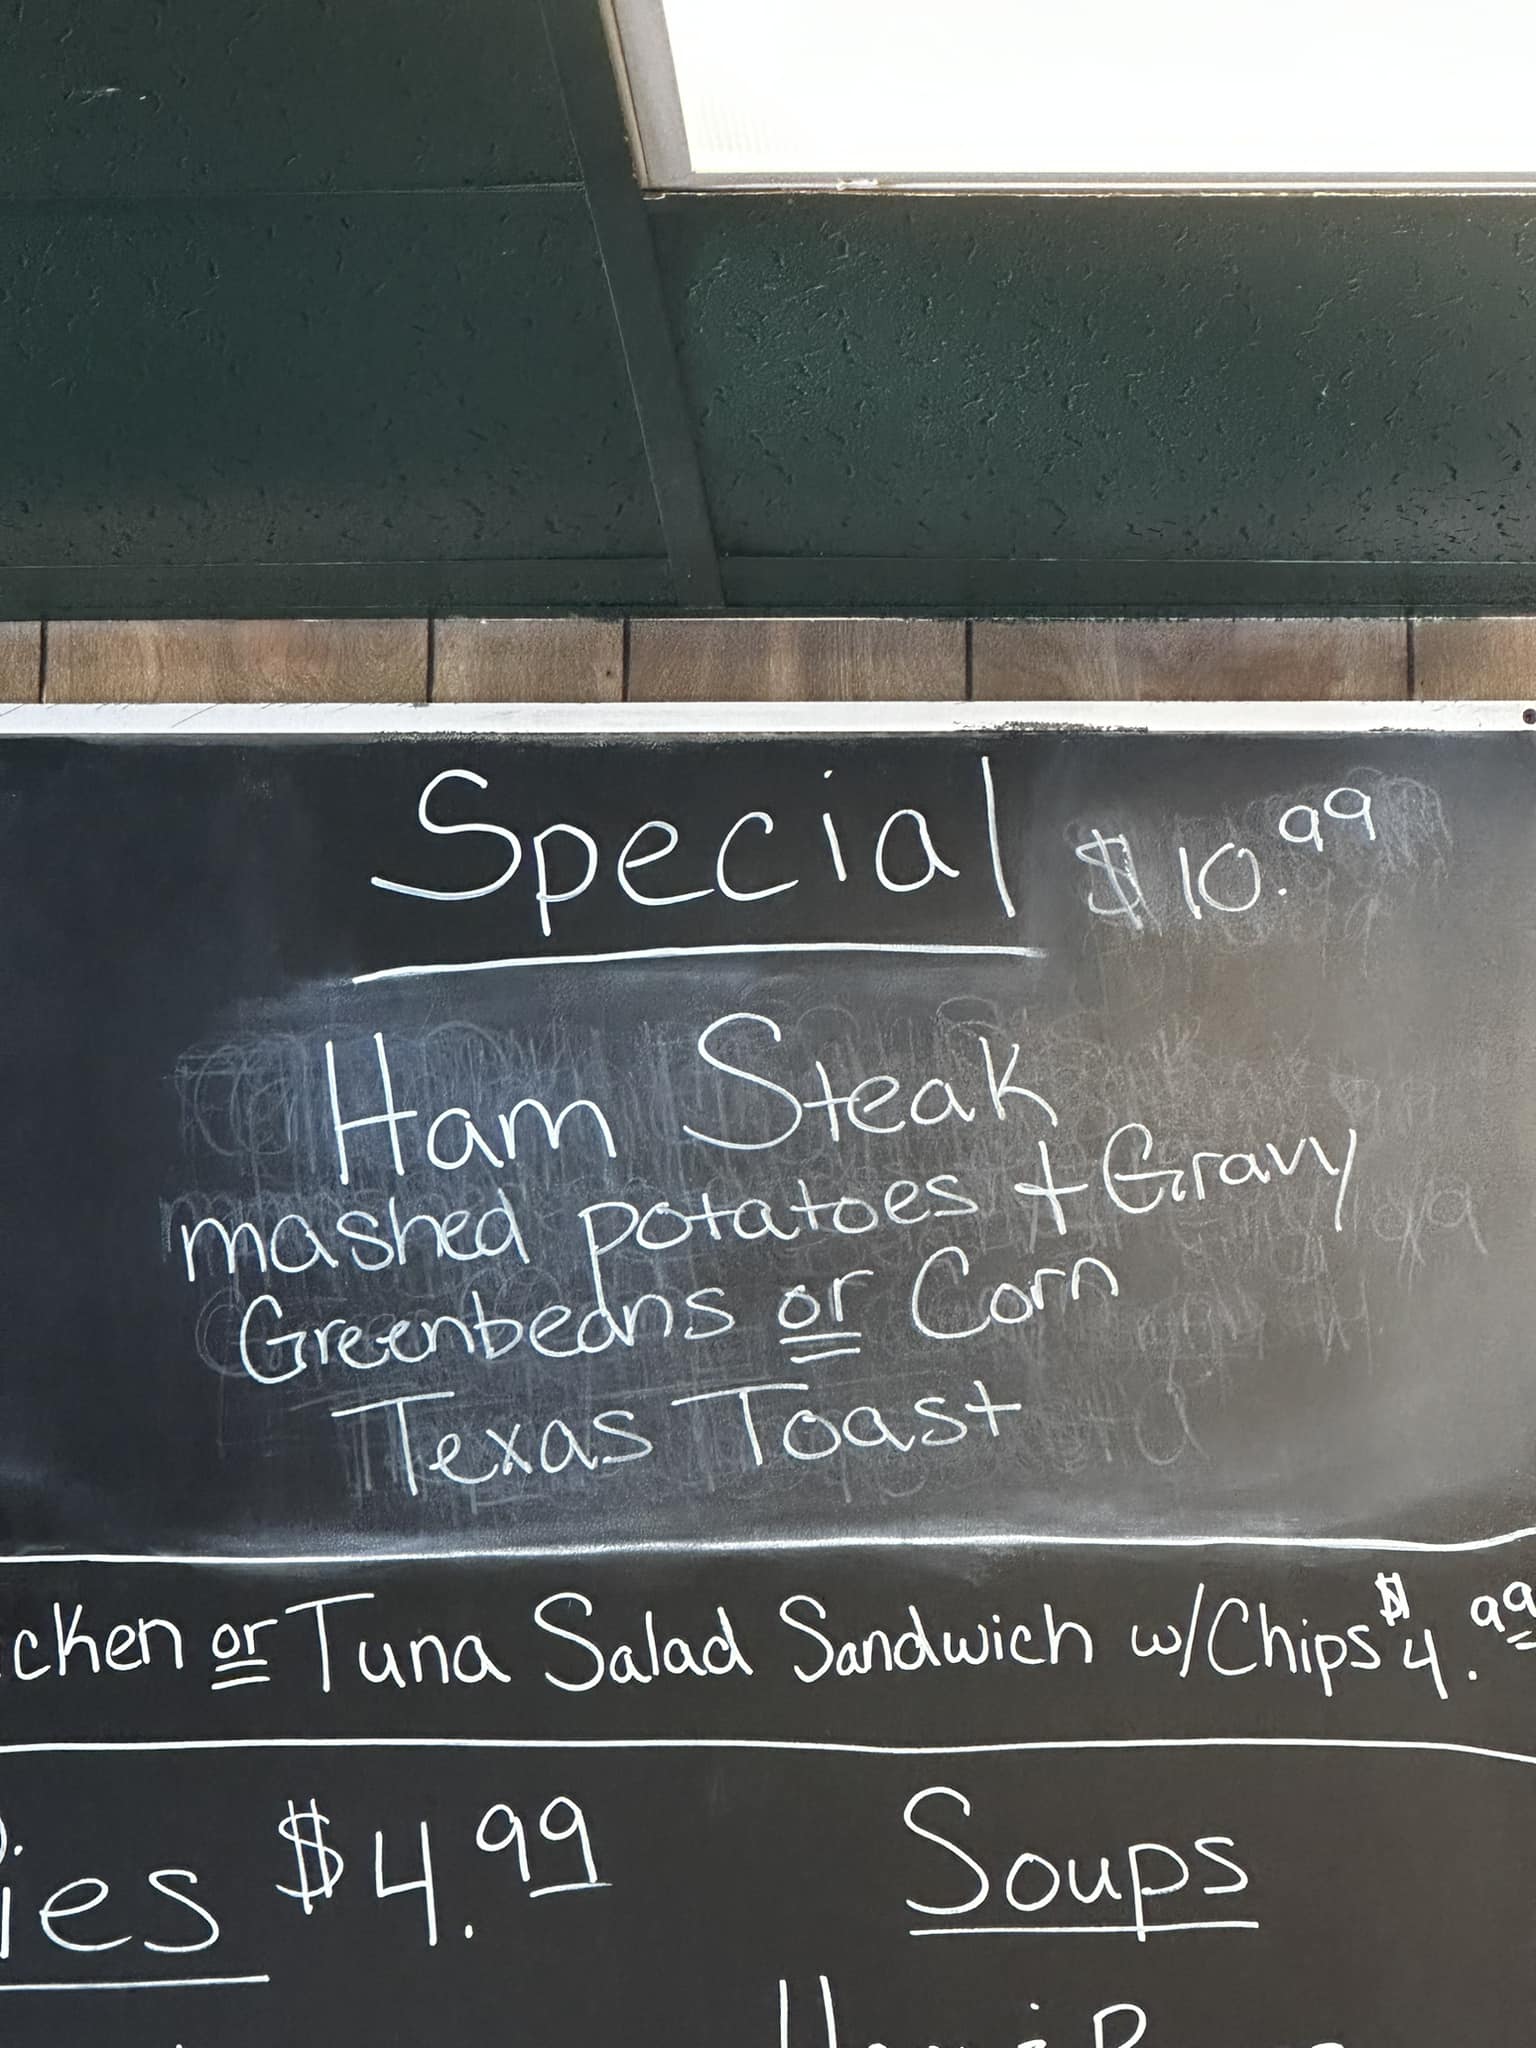 Special $10.99
Ham Steak
mashed potatoes + Gravy
Greenbeans or Corn
Texas Toast
cken or Tuna Salad Sandwich w/Chips $4.99
ies $4.99
Soups